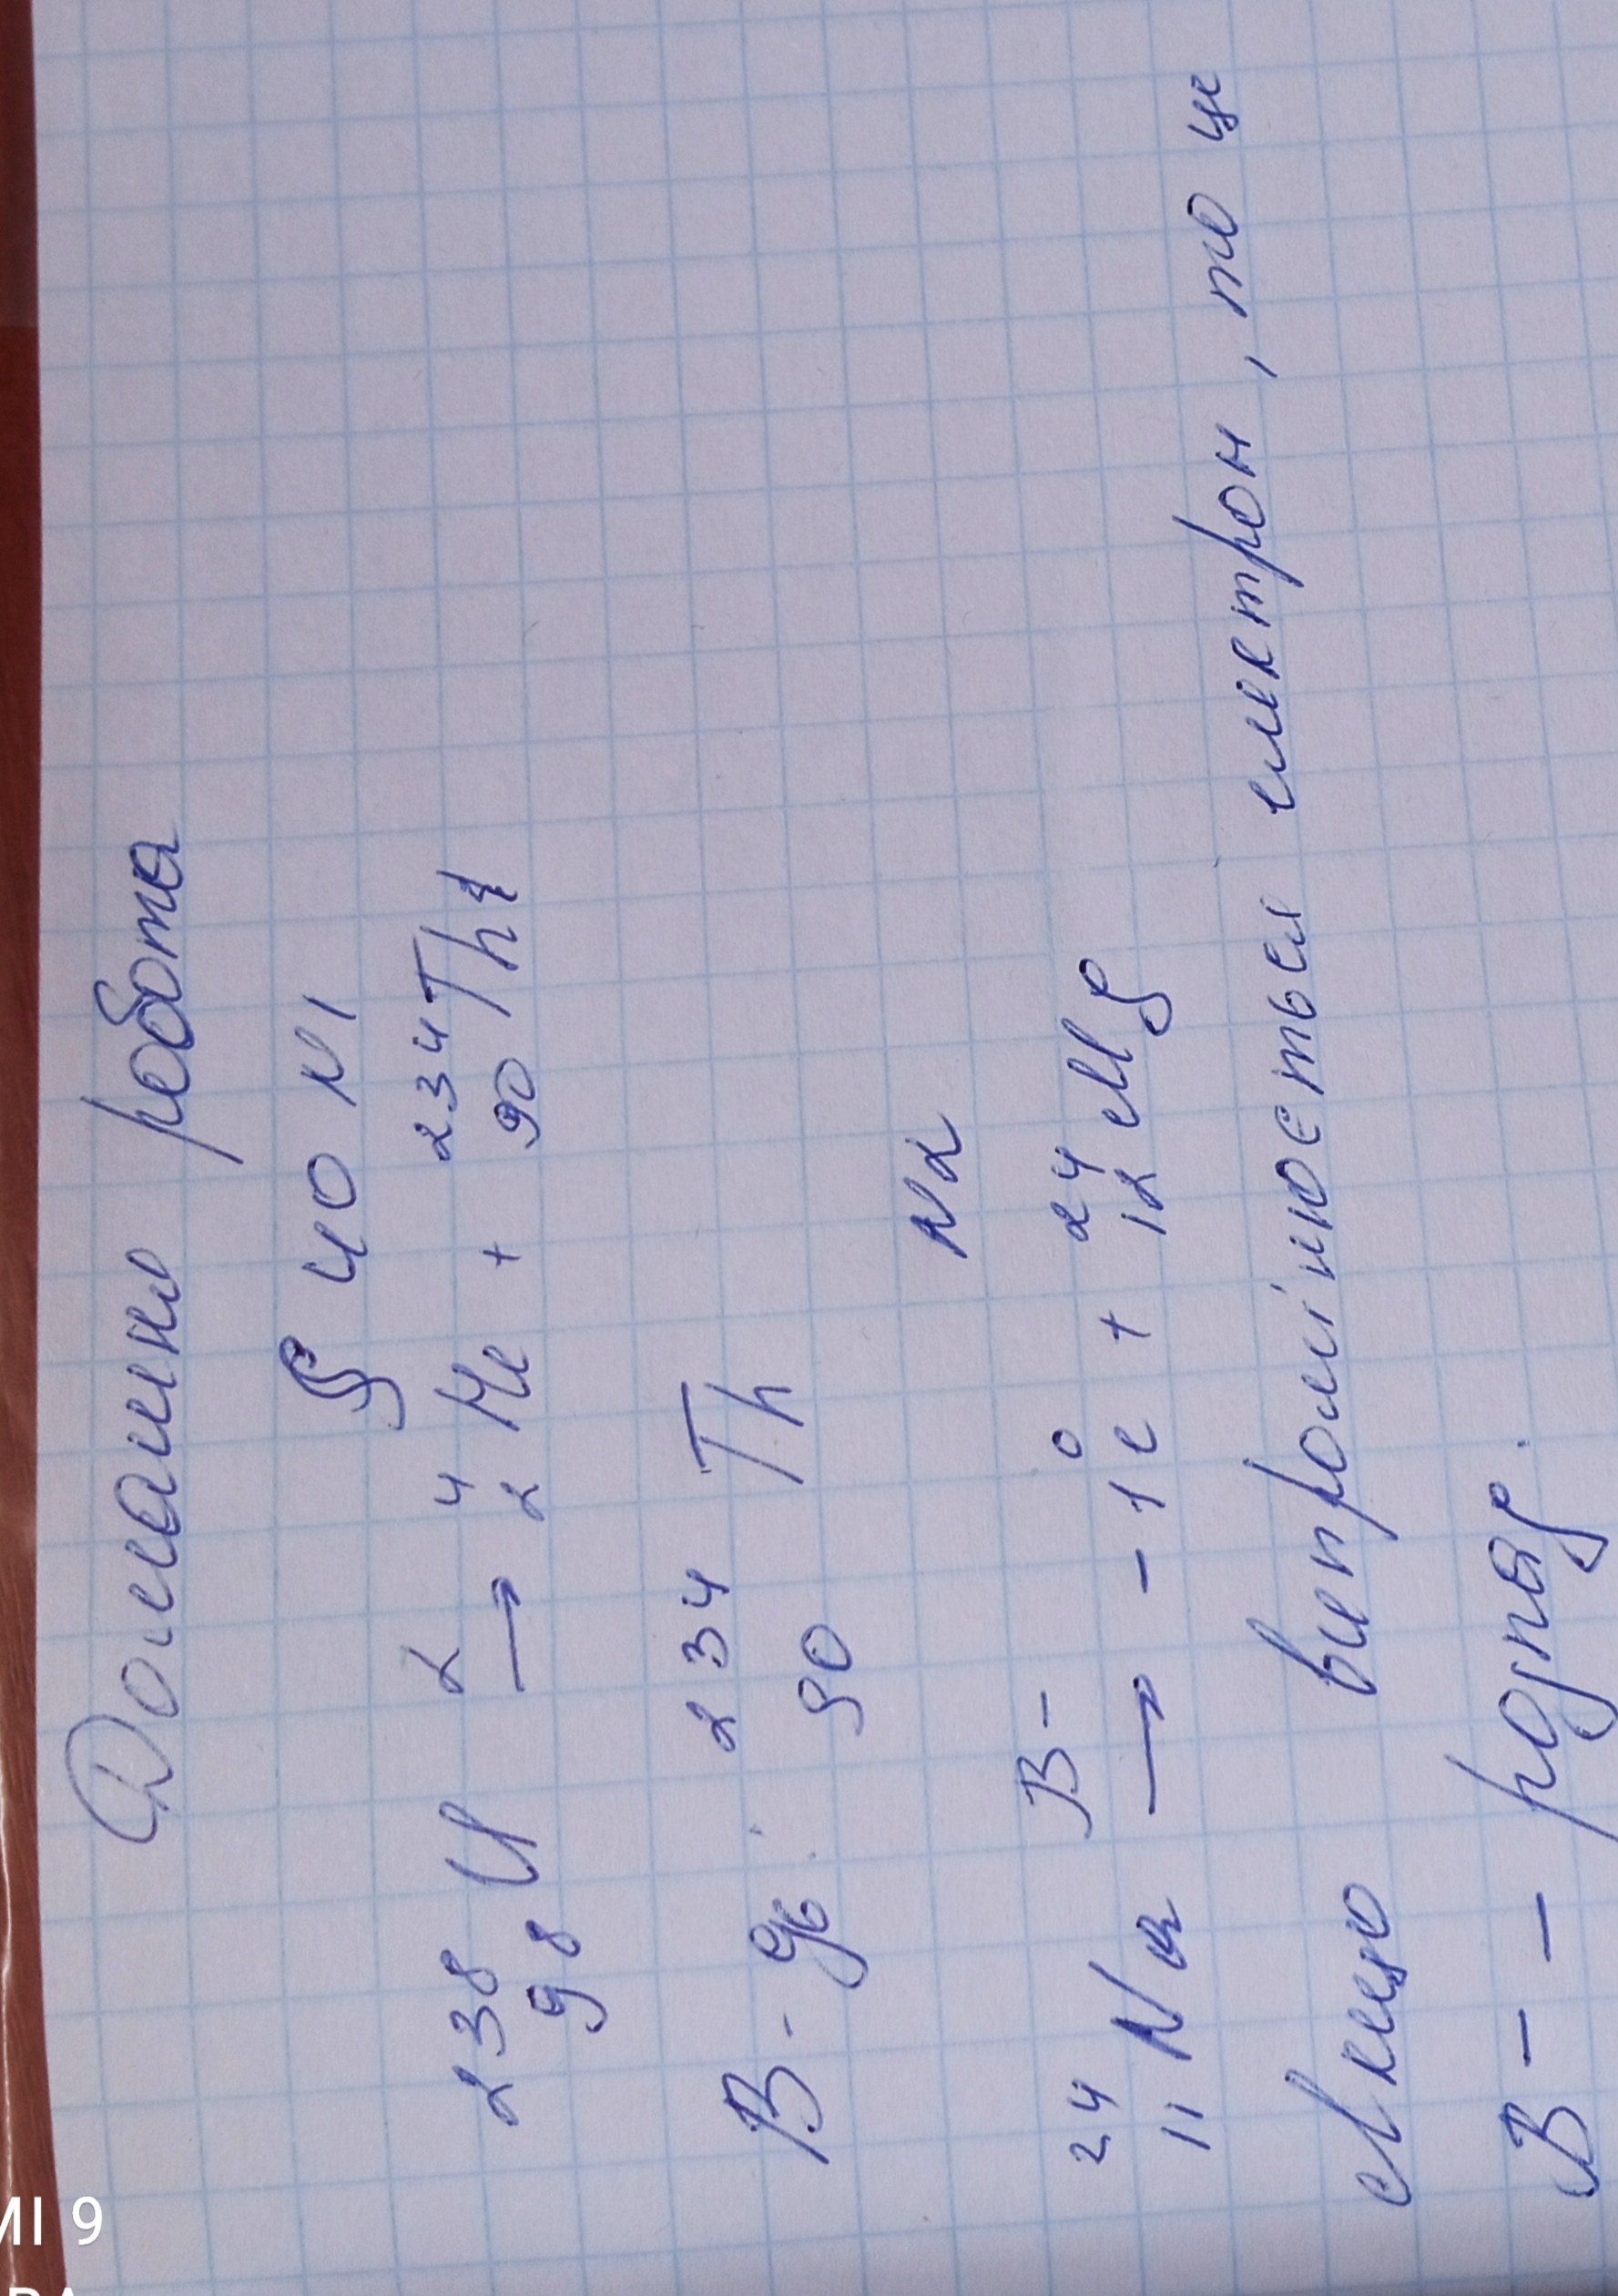 Домашня робота
§ 40 N1
²³⁸₉₈U α→ ⁴₂He + ²³⁴₉₀Th
В-дь: ²³⁴₉₀ Th
N2
²⁴₁₁Na В-→ ₋₁⁰e + ²⁴₁₂Mg
Якщо випромінюється електрон, то це
В- - розпад.
MI 9